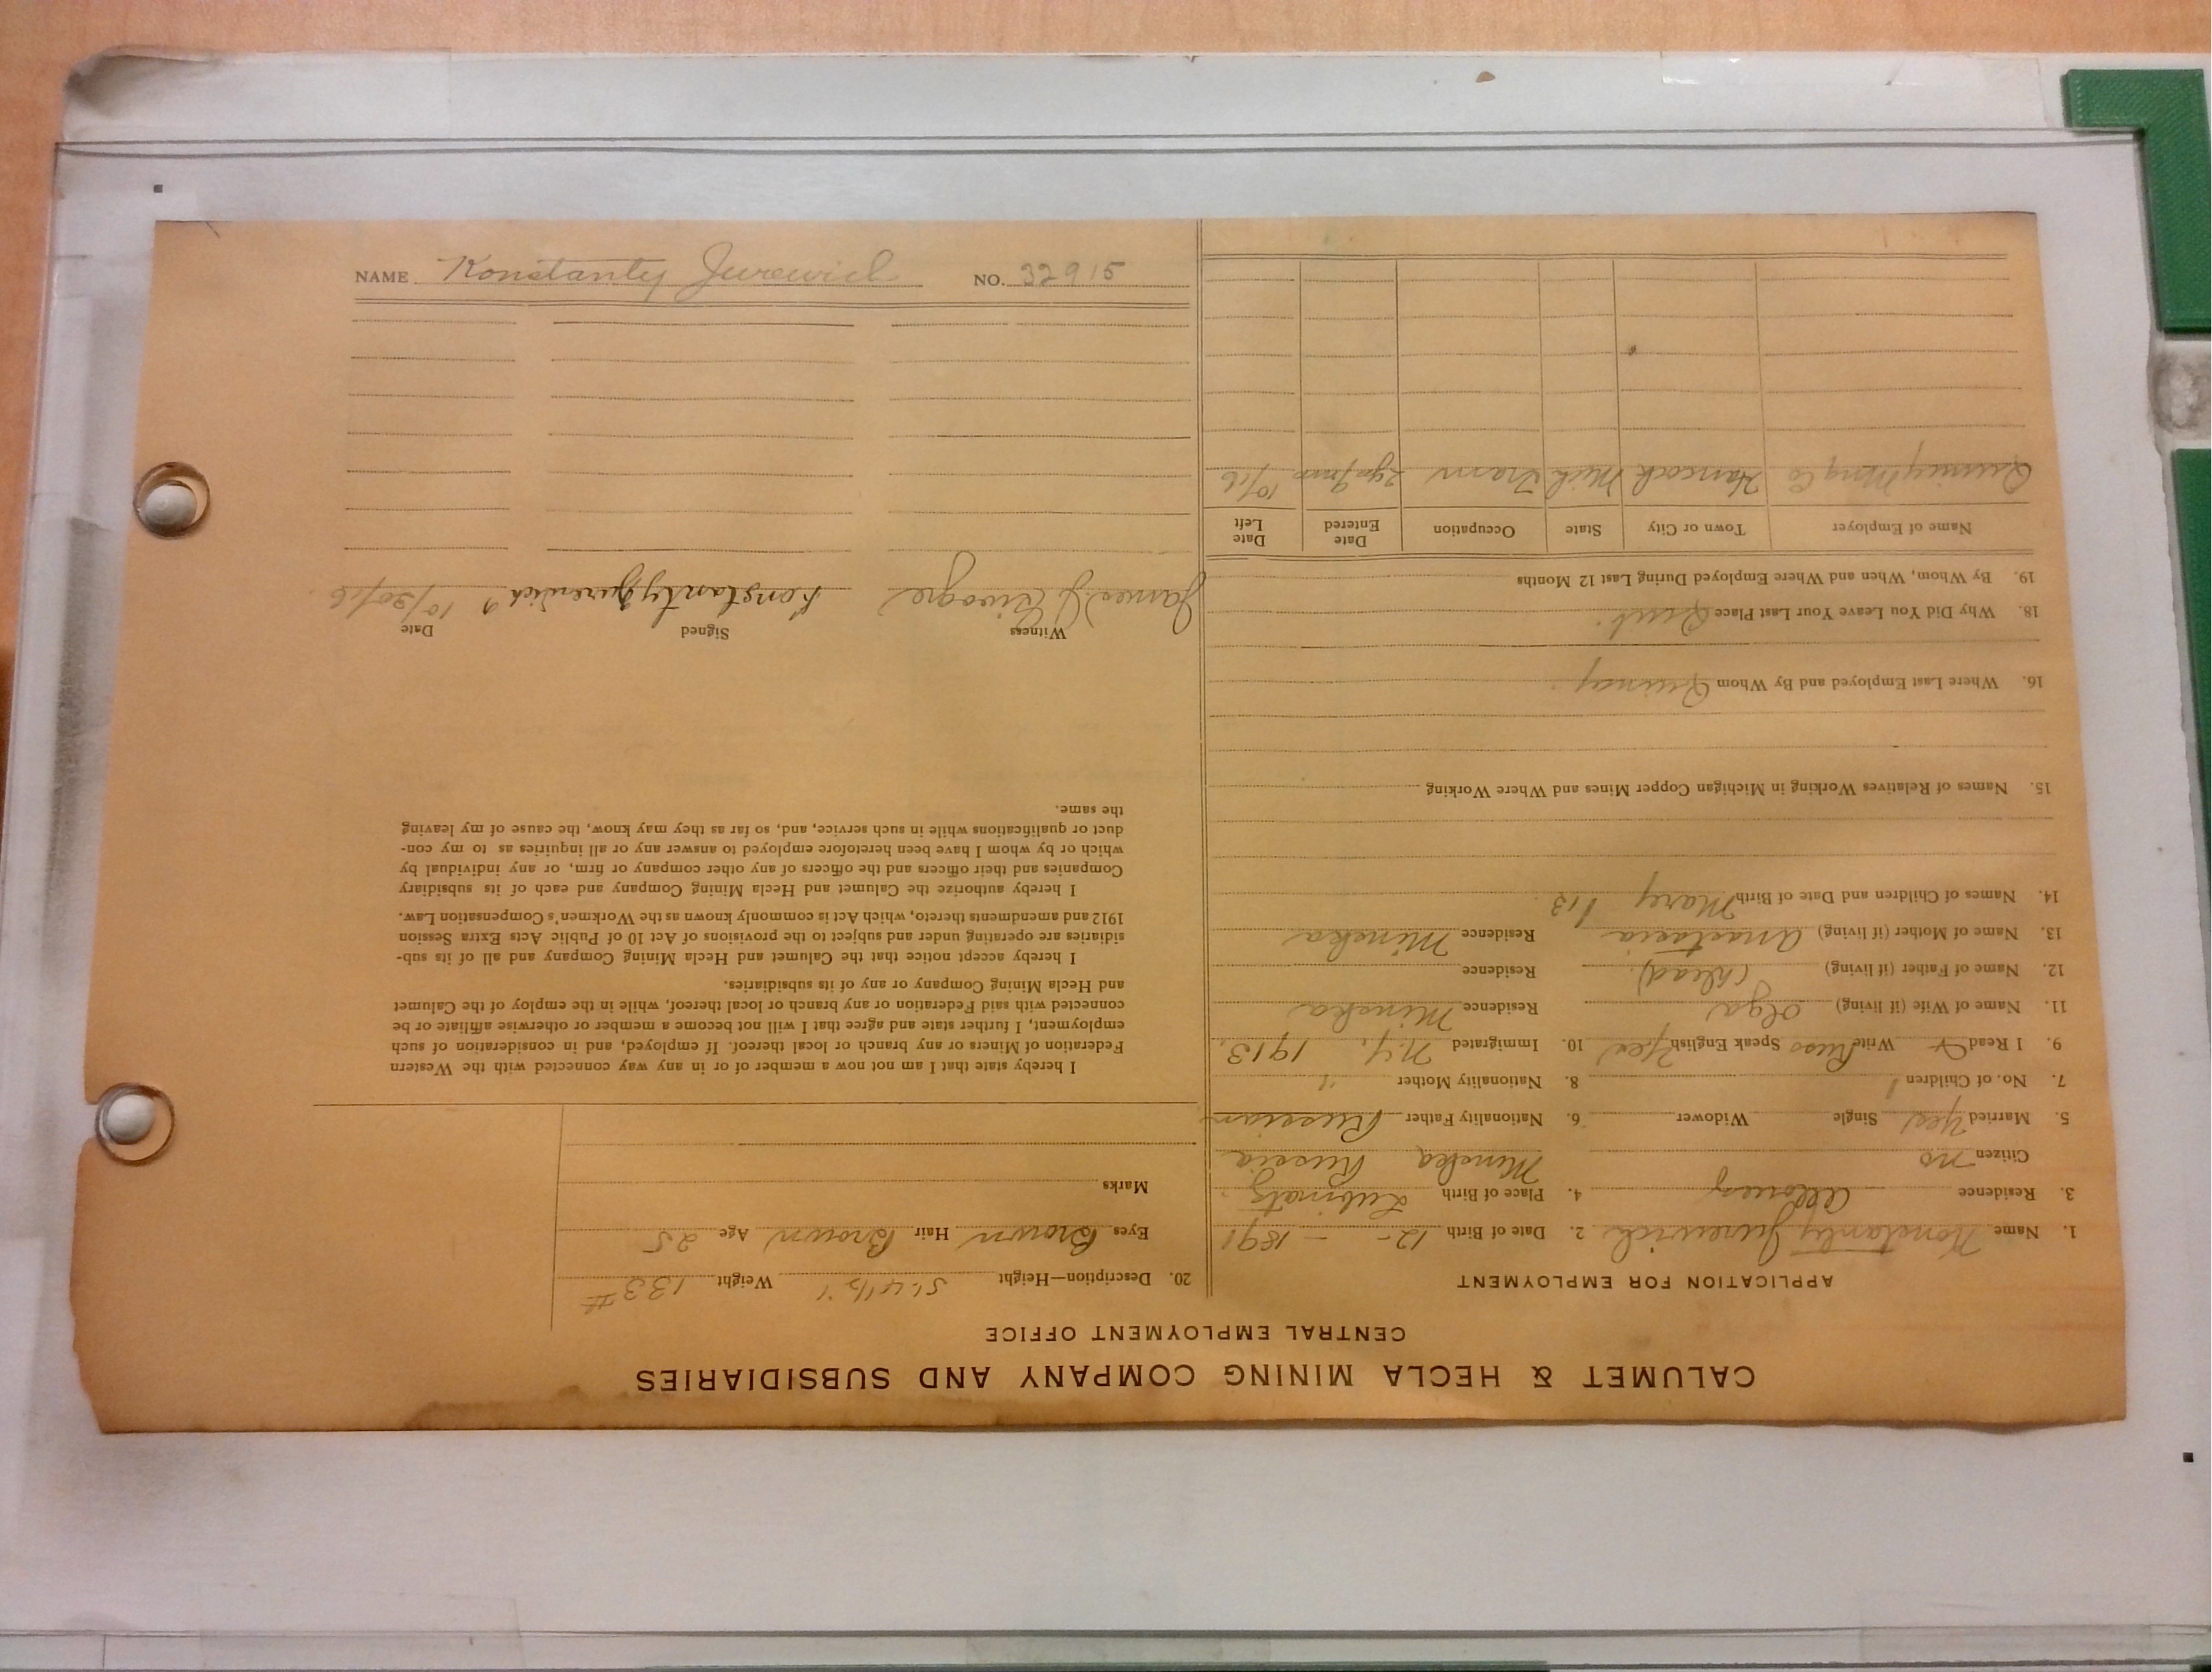 CALUMET & HECLA MINING COMPANY AND SUBSIDIARIES
CENTRAL EMPLOYMENT OFFICE
APPLICATION FOR EMPLOYMENT
1. Name Konstanty Jurewich 2. Date of Birth 12 - – 1891
3. Residence Allouez 4. Place of Birth
Citizen no Minska Russia
5. Married Yes Single Widower 6. Nationality Father Russian
7. No. of Children 1 8. Nationality Mother "
9. I Read & Write Russ Speak English Yes 10. Immigrated N.Y. 1913.
11. Name of Wife (if living) Olga Residence Minska
12. Name of Father (if living) (Dead) Residence
13. Name of Mother (if living) Anastasia Residence Minska
14. Names of Children and Date of Birth Mary
15. Names of Relatives Working in Michigan Copper Mines and Where Working
16. Where Last Employed and By Whom Quincy.
18. Why Did You Leave Your Last Place Quit.
19. By Whom, When and Where Employed During Last 12 Months
Name of Employer Town or City State Occupation Date Entered Date Left
Quincy Mng Co Hancock Mich Tram 10/16
20. Description—Height 5'.4½" Weight 133 #
Eyes Brown Hair Brown Age 25
Marks
I hereby state that I am not now a member of or in any way connected with the Western
Federation of Miners or any branch or local thereof. If employed, and in consideration of such
employment, I further state and agree that I will not become a member or otherwise affiliate or be
connected with said Federation or any branch or local thereof, while in the employ of the Calumet
and Hecla Mining Company or any of its subsidiaries.
I hereby accept notice that the Calumet and Hecla Mining Company and all of its sub-
sidiaries are operating under and subject to the provisions of Act 10 of Public Acts Extra Session
1912 and amendments thereto, which Act is commonly known as the Workmen's Compensation Law.
I hereby authorize the Calumet and Hecla Mining Company and each of its subsidiary
Companies and their officers and the officers of any other company or firm, or any individual by
which or by whom I have been heretofore employed to answer any or all inquiries as to my con-
duct or qualifications while in such service, and, so far as they may know, the cause of my leaving
the same.
Witness Signed Date
James J. Konstanty Jurewich 10/30/16
NAME Konstanty Jurewich NO. 32915